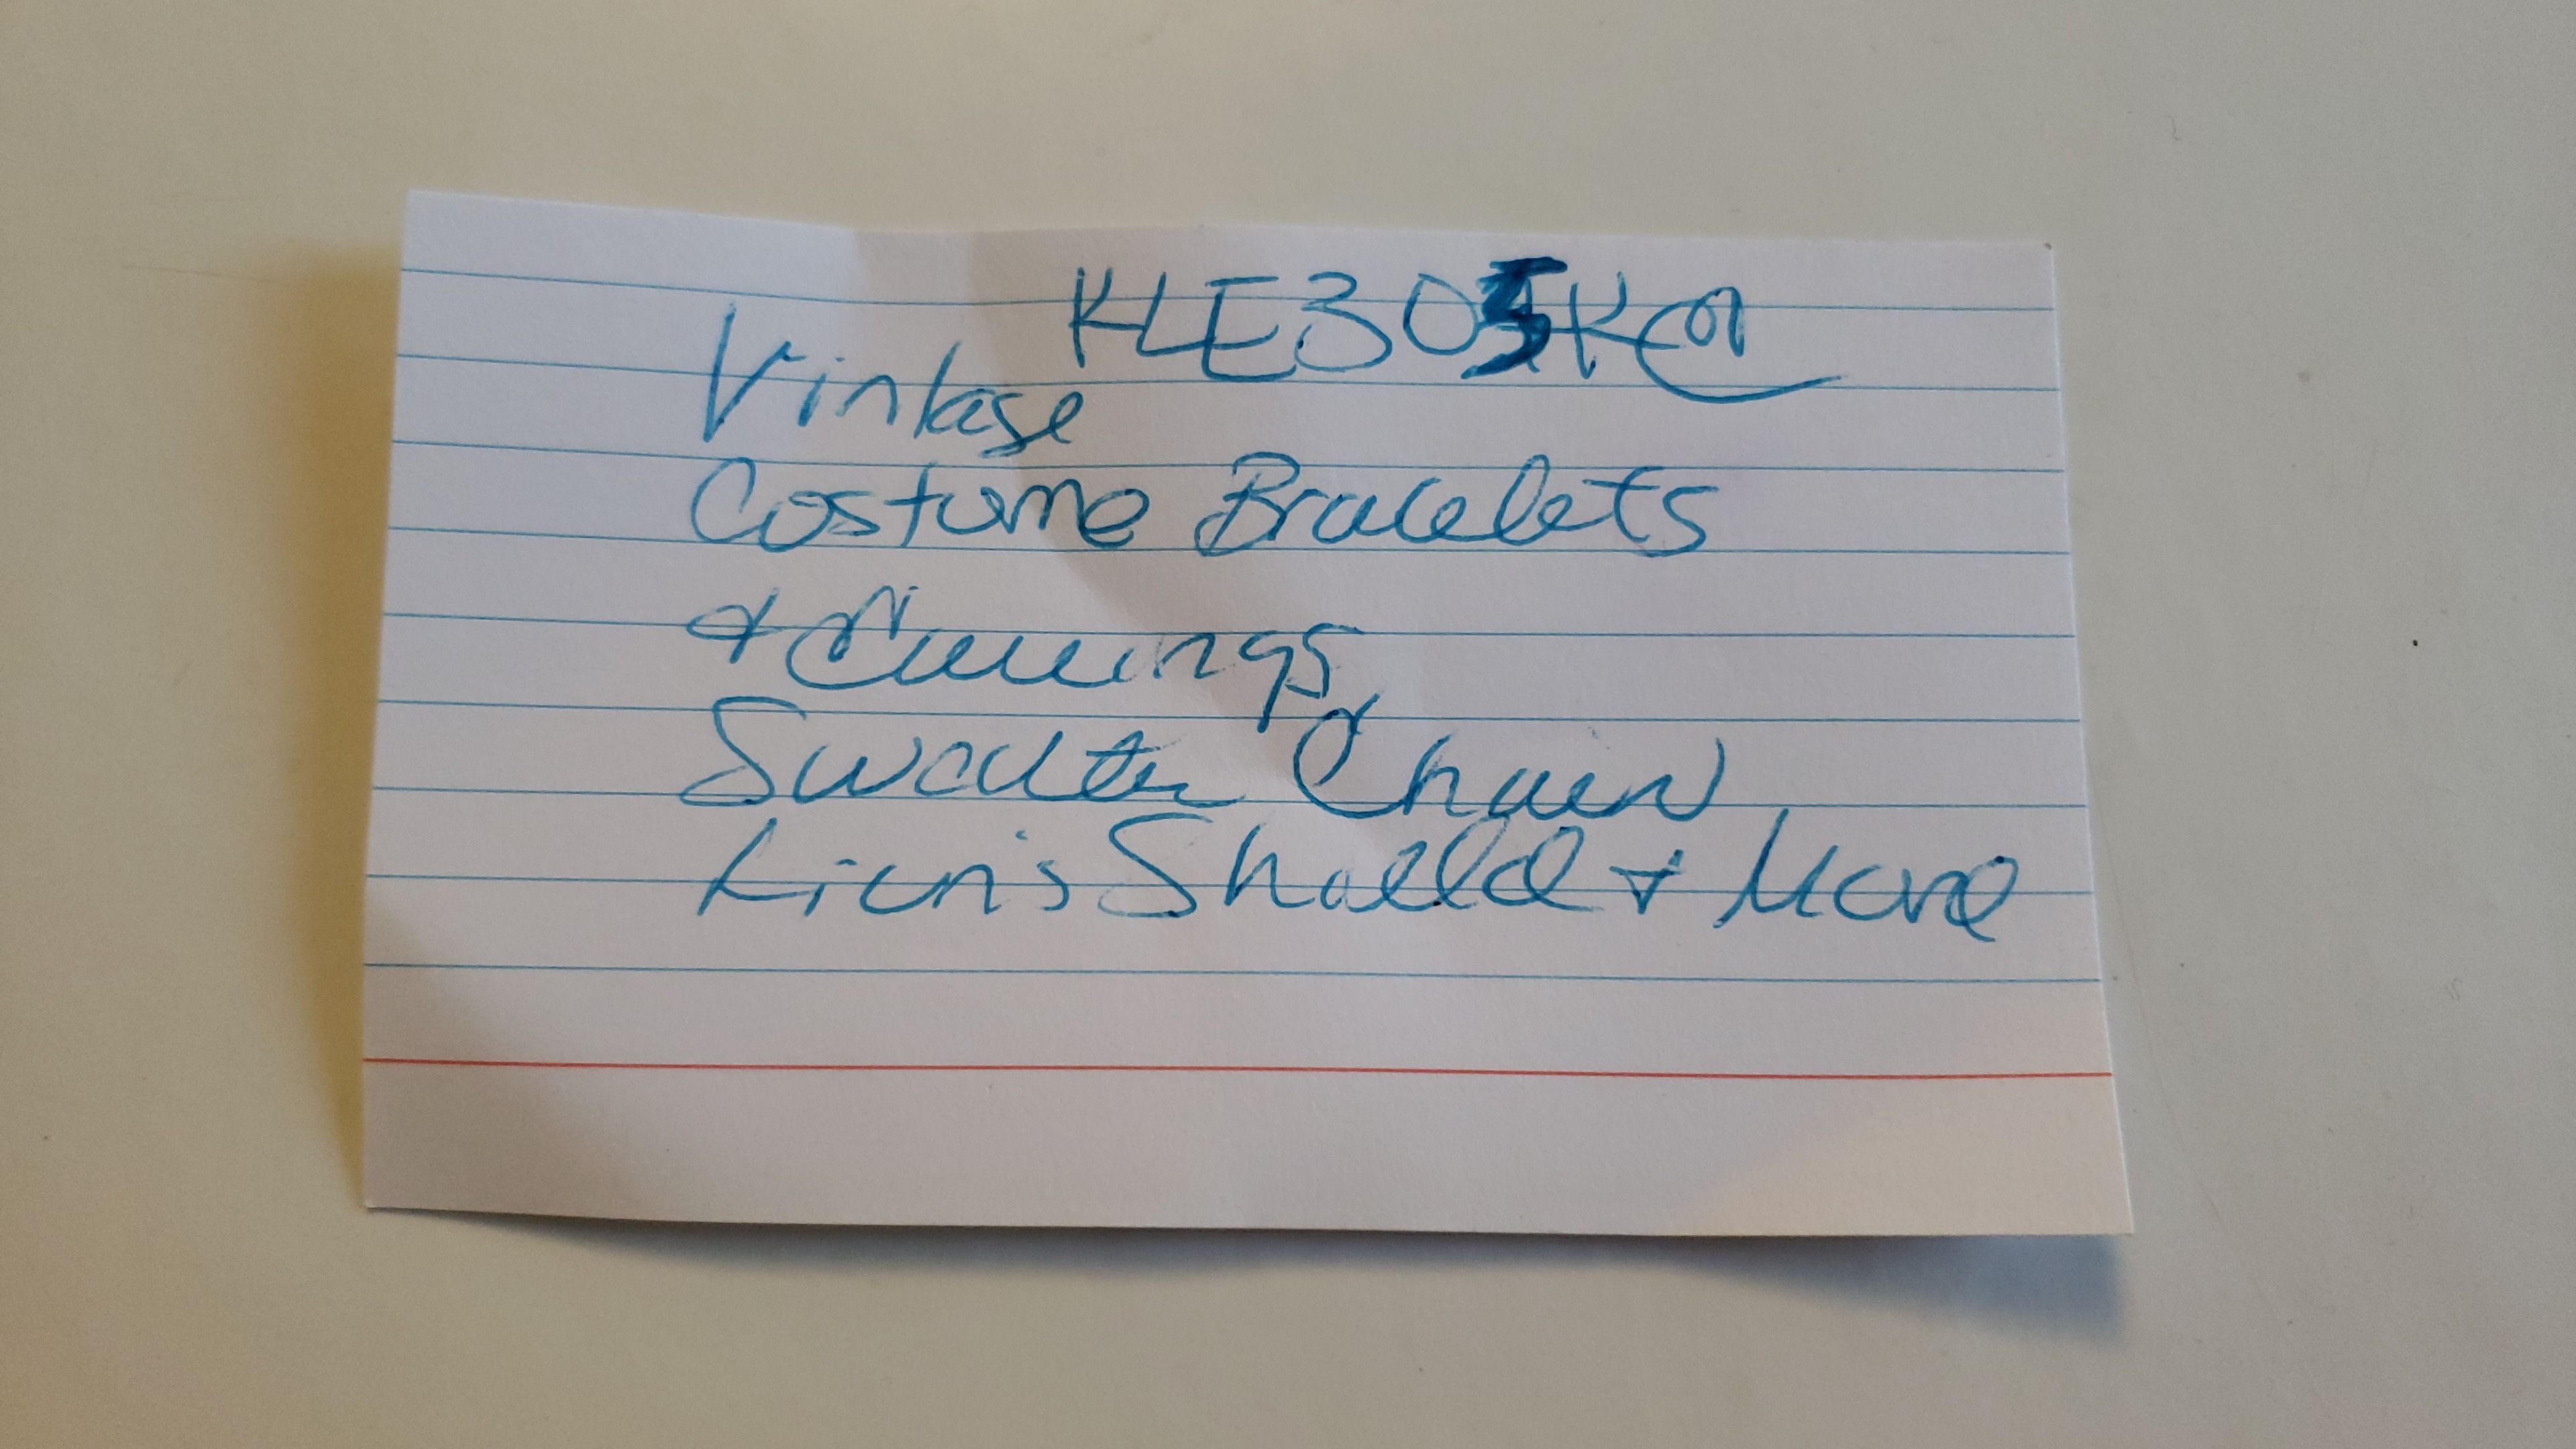 KLE305K
Vintage
Costume Bracelets
+ Earrings
Sweater Chain
Lion's Shield + More